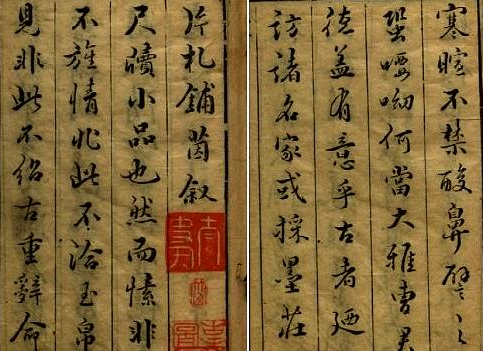 片札鋪茵叙
尺牘小品也然而愫非
不旌情非此不洽玉帛
見非此不紹古重辭命
寒暄不禁酸鼻譬之
蛩嚶呦何當大雅曹君
德盖有意乎古者廼
訪諸名家或採墨莊